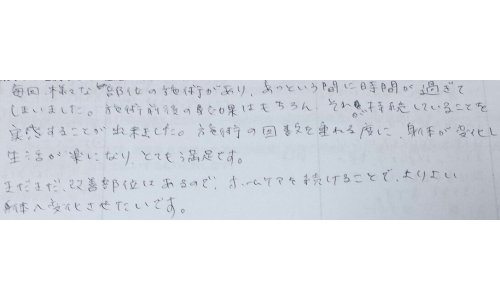 毎回、様々な部位の施術があり、あっという間に時間が過ぎて
しまいました。施術前後の効果はもちろん、それが持続していることを
実感することが出来ました。施術の回数を重ねる度に、身体が変化し
生活が楽になり、とても満足です。
まだまだ、改善部位はあるので、ホームケアを続けることで、よりよい
身体へ変化させたいです。